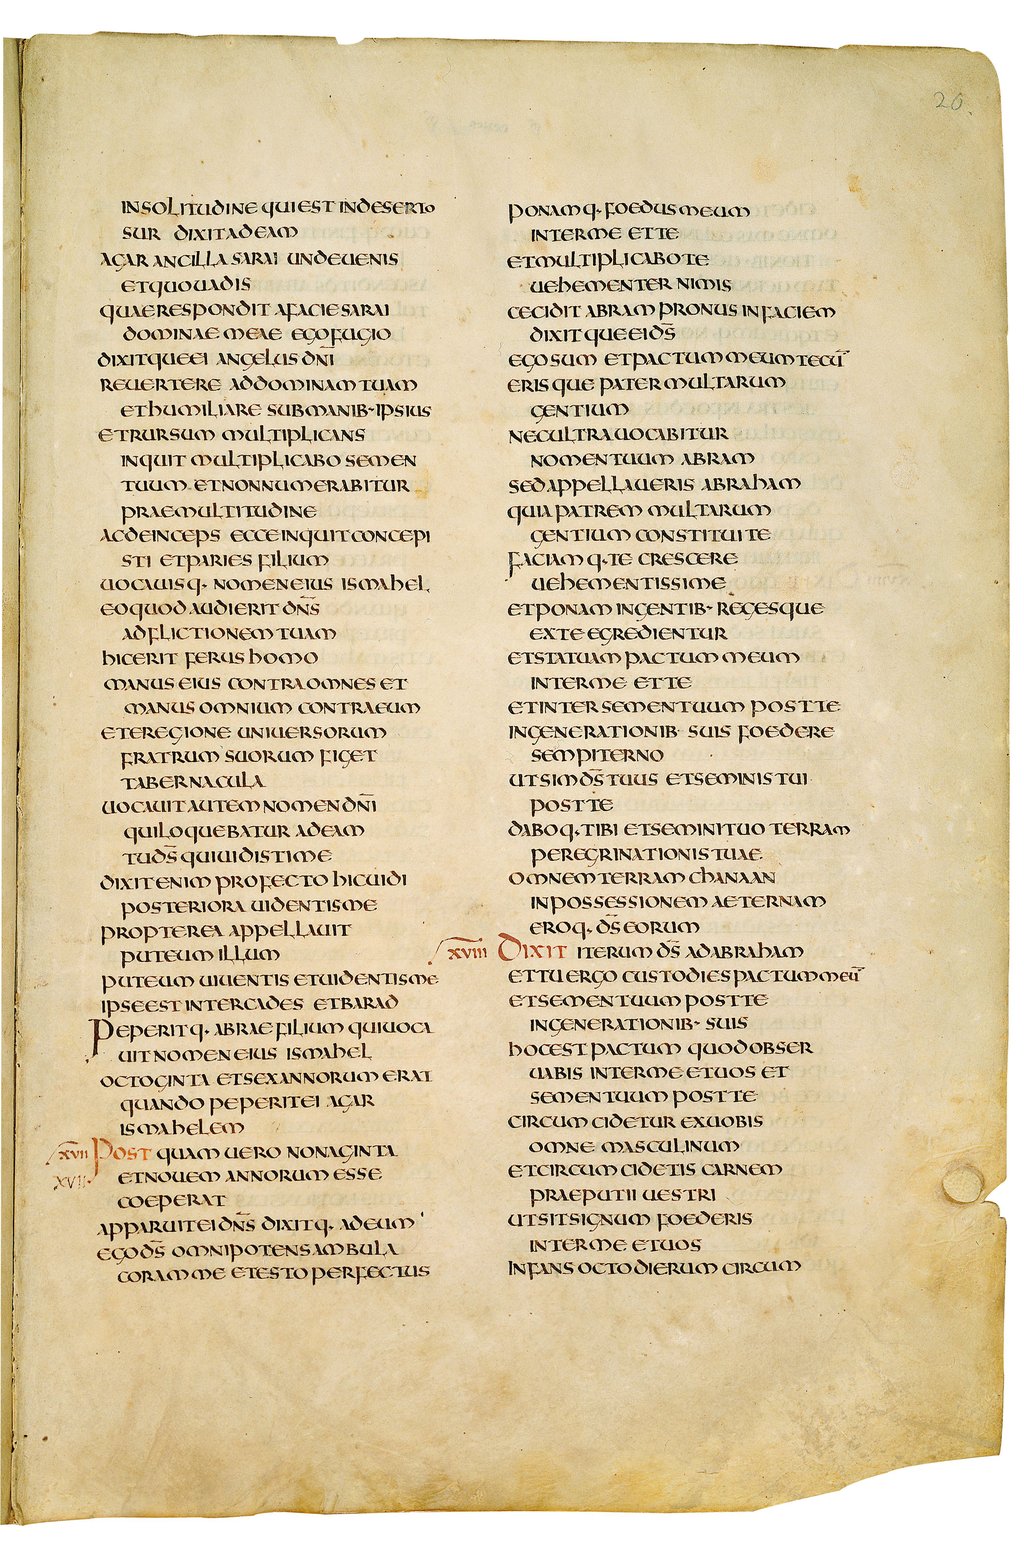 20.
IN SOLITUDINE QUI EST IN DESERTO
SUR DIXIT AD EAM
AGAR ANCILLA SARAI UNDE UENIS
ET QUO UADIS
QUAE RESPONDIT A FACIE SARAI
DOMINAE MEAE EGO FUGIO
DIXITQUE EI ANGELUS DN̄I
REUERTERE AD DOMINAM TUAM
ET HUMILIARE SUB MANIB· IPSIUS
ET RURSUM MULTIPLICANS
INQUIT MULTIPLICABO SEMEN
TUUM ET NON NUMERABITUR
PRAE MULTITUDINE
AC DEINCEPS ECCE INQUIT CONCEPI
STI ET PARIES FILIUM
UOCAUISQ· NOMEN EIUS ISMAHEL
EO QUOD AUDIERIT DN̄S
ADFLICTIONEM TUAM
HIC ERIT FERUS HOMO
MANUS EIUS CONTRA OMNES ET
MANUS OMNIUM CONTRA EUM
ET E REGIONE UNIUERSORUM
FRATRUM SUORUM FIGET
TABERNACULA
UOCAUIT AUTEM NOMEN DN̄I
QUI LOQUEBATUR AD EAM
TU DS̄ QUI UIDISTI ME
DIXIT ENIM PROFECTO HIC UIDI
POSTERIORA UIDENTIS ME
PROPTEREA APPELLAUIT
PUTEUM ILLUM
PUTEUM UIUENTIS ET UIDENTIS ME
IPSE EST INTER CADES ET BARAD
PEPERITQ· ABRAE FILIUM QUI UOCA
UIT NOMEN EIUS ISMAHEL
OCTOGINTA ET SEX ANNORUM ERAT
QUANDO PEPERIT EI AGAR
ISMAHELEM
XVII POST QUAM UERO NONAGINTA
XVII ET NOUEM ANNORUM ESSE
COEPERAT
APPARUIT EI DN̄S DIXITQ· AD EUM
EGO DS̄ OMNIPOTENS AMBULA
CORAM ME ET ESTO PERFECTUS
PONAMQ· FOEDUS MEUM
INTER ME ET TE
ET MULTIPLICABO TE
UEHEMENTER NIMIS
CECIDIT ABRAM PRONUS IN FACIEM
DIXITQUE EI DS̄
EGO SUM ET PACTUM MEUM TECŪ
ERISQUE PATER MULTARUM
GENTIUM
NEC ULTRA UOCABITUR
NOMEN TUUM ABRAM
SED APPELLAUERIS ABRAHAM
QUIA PATREM MULTARUM
GENTIUM CONSTITUI TE
FACIAMQ· TE CRESCERE
UEHEMENTISSIME
ET PONAM IN GENTIB· REGESQUE
EX TE EGREDIENTUR
ET STATUAM PACTUM MEUM
INTER ME ET TE
ET INTER SEMEN TUUM POST TE
IN GENERATIONIB· SUIS FOEDERE
SEMPITERNO
UT SIM DS̄ TUUS ET SEMINIS TUI
POST TE
DABOQ· TIBI ET SEMINI TUO TERRAM
PEREGRINATIONIS TUAE
OMNEM TERRAM CHANAAN
IN POSSESSIONEM AETERNAM
EROQ· DS̄ EORUM
XVIII DIXIT ITERUM DS̄ AD ABRAHAM
ET TU ERGO CUSTODIES PACTUM MEŪ
ET SEMEN TUUM POST TE
IN GENERATIONIB· SUIS
HOC EST PACTUM QUOD OBSER
UABIS INTER ME ET UOS ET
SEMEN TUUM POST TE
CIRCUMCIDETUR EX UOBIS
OMNE MASCULINUM
ET CIRCUMCIDETIS CARNEM
PRAEPUTII UESTRI
UT SIT SIGNUM FOEDERIS
INTER ME ET UOS
INFANS OCTO DIERUM CIRCUM